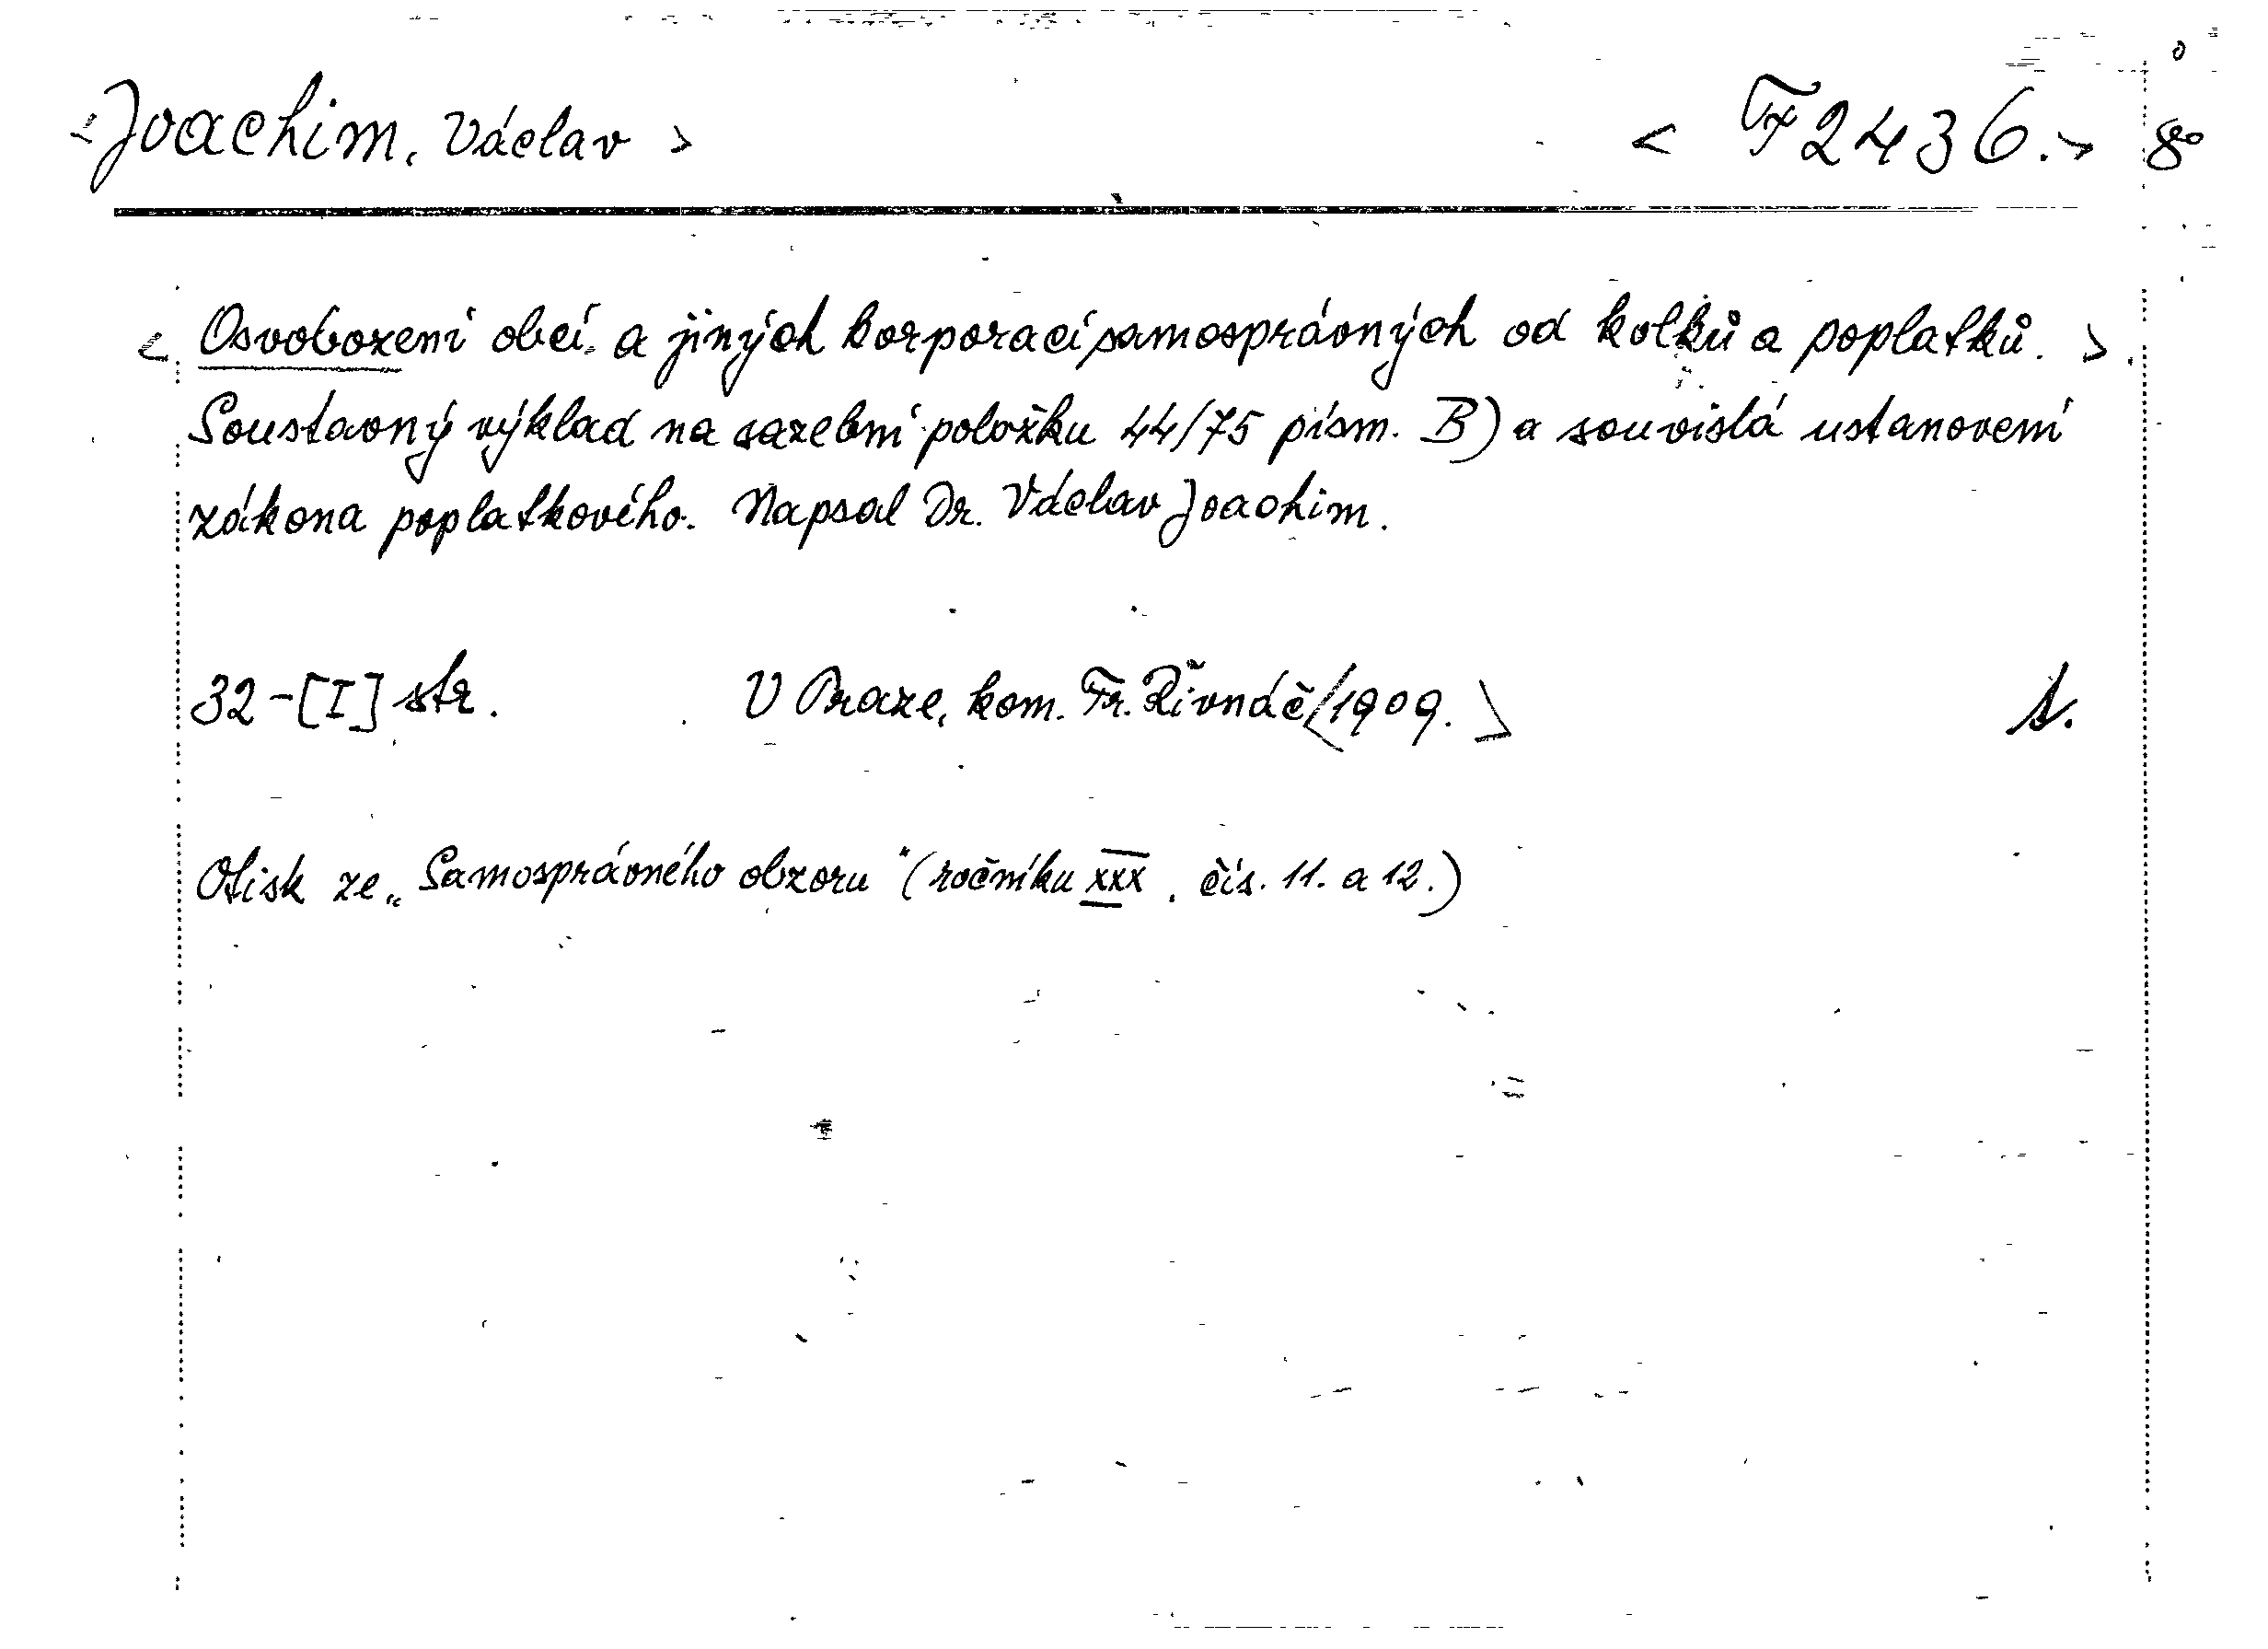 <Joachim, Václav> <F 2436.> 8°
<Osvobození obcí a jiných korporací samosprávných od kolků a poplatků.>
Soustavný výklad na sazební položku 44/75 písm. B) a souvislá ustanovení
zákona poplatkového. Napsal Dr. Václav Joachim.
32-[I] str. V Praze, kom. Fr. Řivnáč <1909.> A.
Otisk ze „Samosprávného obzoru" (ročníku XXX. čís. 11. a 12.)